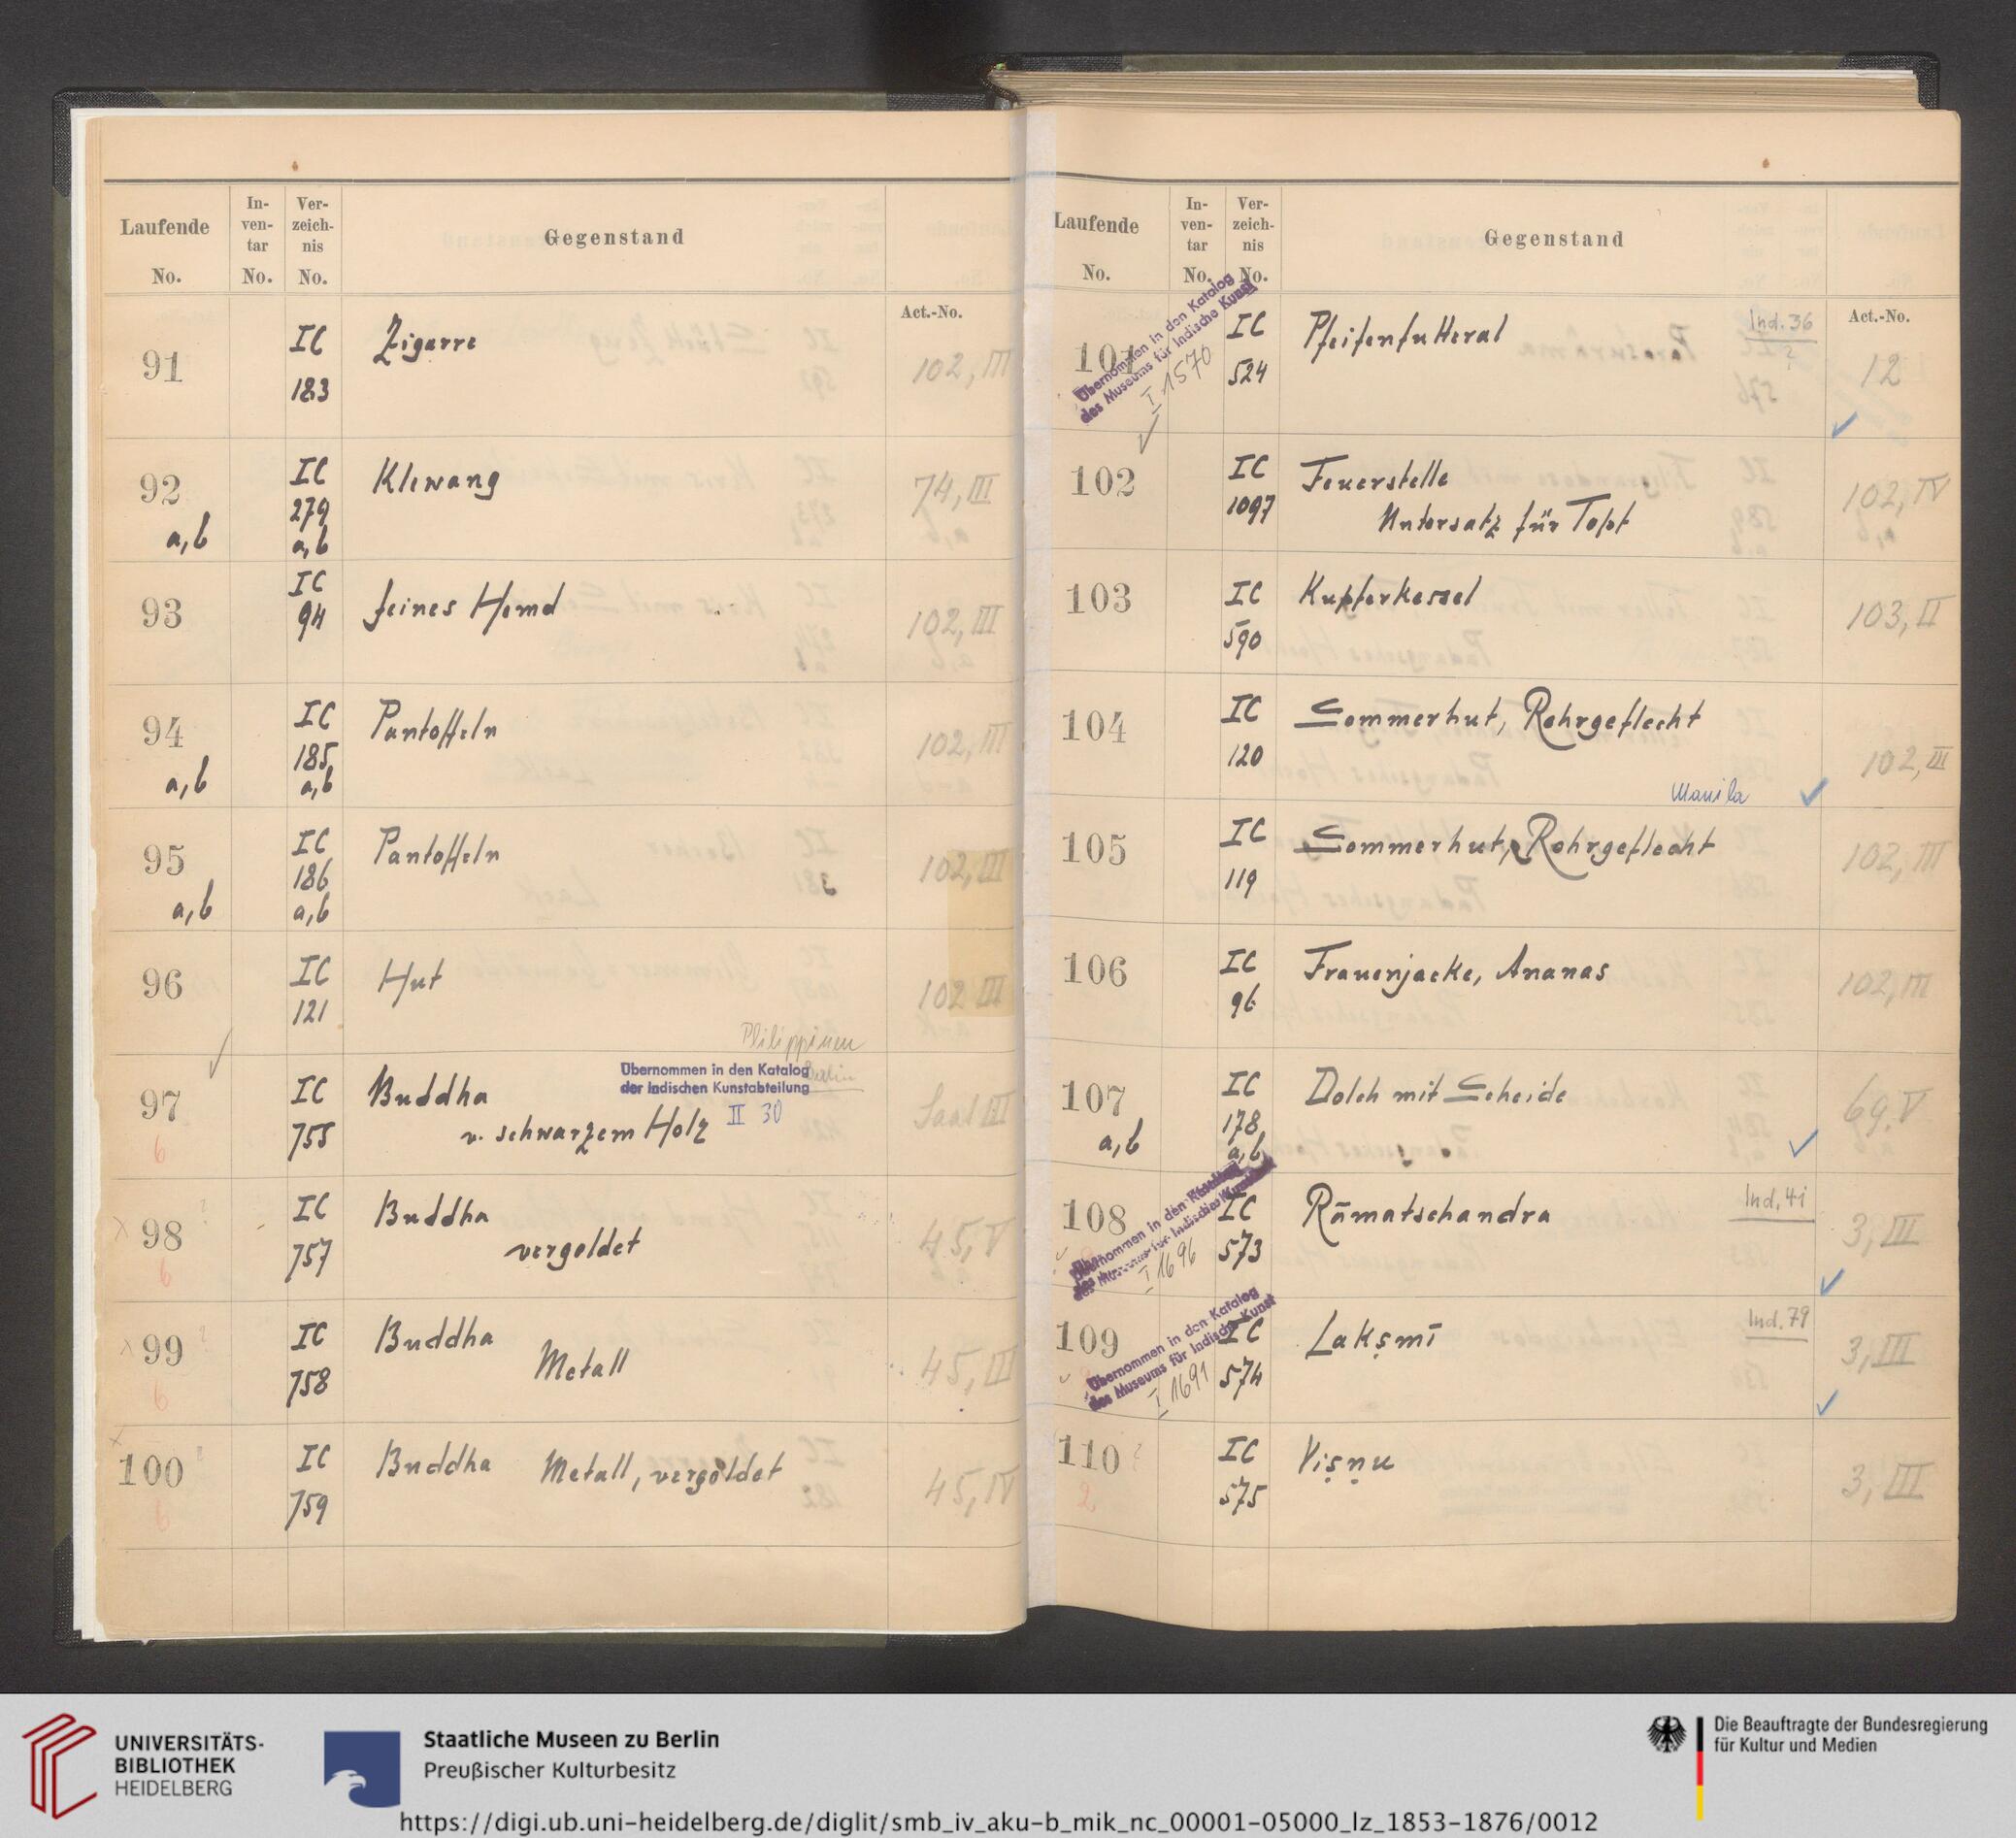 Laufende
No.
In-
ven-
tar
No.
Ver-
zeich-
nis
No.
Gegenstand
Act.-No.
91
IC
183
Zigarre
102, III
92
a, b
IC
279
a, b
Klewang
74, III
93
IC
94
feines Hemd
102, III
94
a, b
IC
185
a, b
Pantoffeln
102, III
95
a, b
IC
186
a, b
Pantoffeln
102, III
96
IC
121
Hut
102 III
Philippinen
Berlin
97
6
IC
755
Buddha
v. schwarzem Holz
Übernommen in den Katalog
der Indischen Kunstabteilung
II 30
Saal III
98
6
IC
757
Buddha
vergoldet
45, V
99
6
IC
758
Buddha
Metall
45, III
100
6
IC
759
Buddha Metall, vergoldet
45, IV
Laufende
No.
In-
ven-
tar
No.
Ver-
zeich-
nis
No.
Gegenstand
Act.-No.
101
Übernommen in den Katalog
des Museums für Indische Kunst
I 1570
IC
524
Pfeifenfutteral
Ind. 36
?
12
102
IC
1097
Feuerstelle
Untersatz für Topf
102, IV
103
IC
590
Kupferkessel
103, II
104
IC
120
Sommerhut, Rohrgeflecht
102, III
Manila
105
IC
119
Sommerhut, Rohrgeflecht
102, III
106
IC
96
Frauenjacke, Ananas
102, III
107
a, b
IC
178
a, b
Dolch mit Scheide
69. V
108
Übernommen in den Katalog
des Museums für Indische Kunst
I 1696
IC
573
Rāmatschandra
Ind. 41
3, III
109
Übernommen in den Katalog
des Museums für Indische Kunst
I 1691
IC
574
Lakṣmī
Ind. 79
3, III
110
2
IC
575
Viṣṇu
3, III
UNIVERSITÄTS-
BIBLIOTHEK
HEIDELBERG
Staatliche Museen zu Berlin
Preußischer Kulturbesitz
Die Beauftragte der Bundesregierung
für Kultur und Medien
https://digi.ub.uni-heidelberg.de/diglit/smb_iv_aku-b_mik_nc_00001-05000_lz_1853-1876/0012